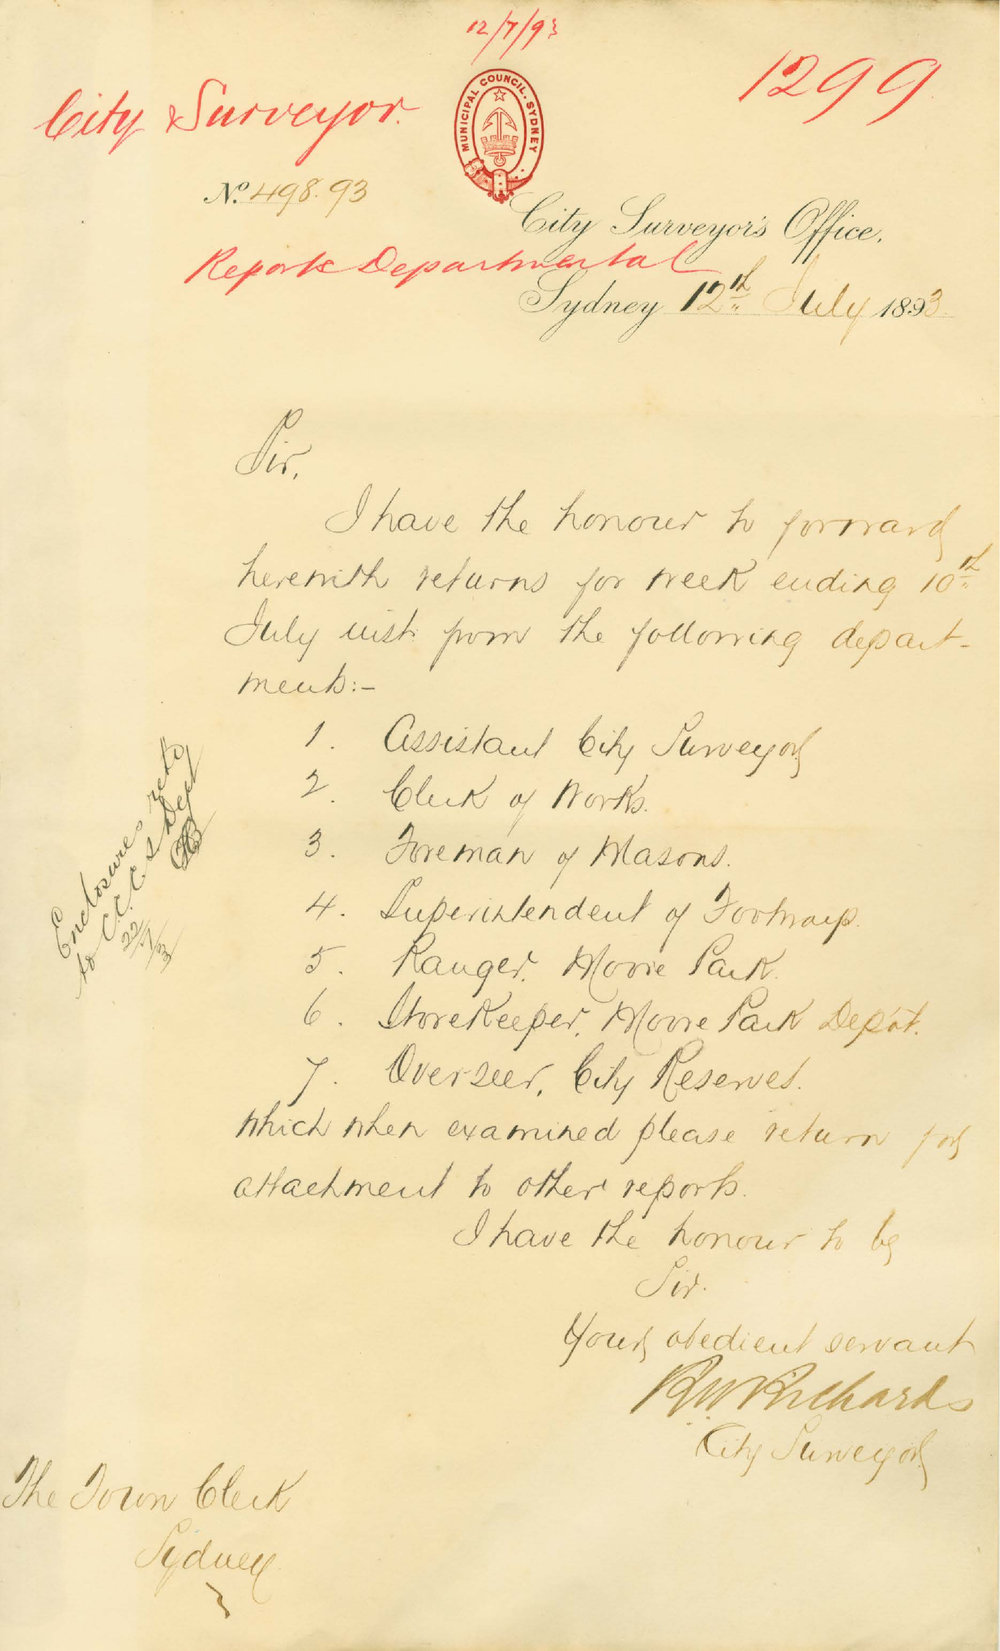 12/7/93
City Surveyor.
1299
MUNICIPAL COUNCIL. SYDNEY
No. 498.93
City Surveyor's Office.
Reports Departmental
Sydney 12th July 1893
Sir,
I have the honour to forward
herewith returns for week ending 10th
July inst from the following depart-
ments:-
1. Assistant City Surveyor
2. Clerk of Works.
3. Foreman of Masons.
4. Superintendent of Footways.
5. Ranger, Moore Park.
6. Storekeeper, Moore Park Depôt.
7. Overseer, City Reserves.
which when examined please return for
attachment to other reports.
I have the honour to be
Sir.
Your obedient servant
R W Richards
City Surveyor
Enclosures retd
to C.C.C. S Dept
22/7/3
The Town Clerk
Sydney